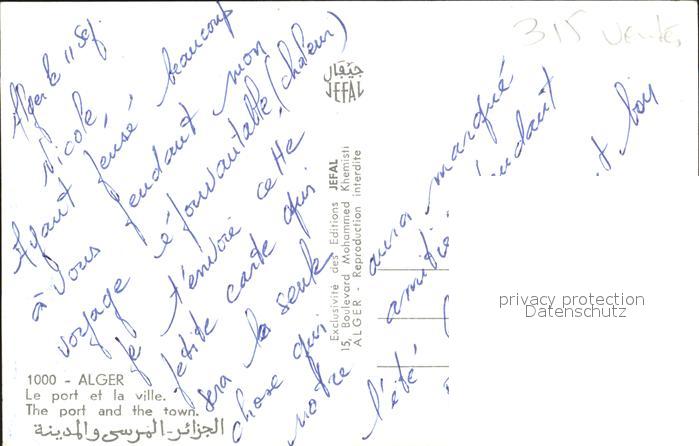 Alger le 11 Sep.
Nicole,
Ayant pensé beaucoup
à vous pendant mon
voyage épouvantable, (chaleur)
je t'envoie cette
petite carte qui
sera la seule
chose qui
notre
aura marqué
l'été
et
315
جيفال
JEFAL
Exclusivité des Editions JEFAL
15, Boulevard Mohammed Khemisti
ALGER - Reproduction interdite
1000 - ALGER
Le port et la ville.
The port and the town.
الجزائر - المرسى والمدينة
privacy protection
Datenschutz